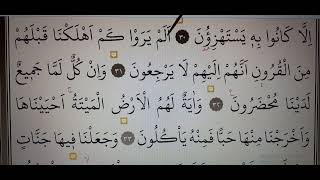 اِلَّا كَانُوا بِهٖ يَسْتَهْزِؤُنَ ﴿٣٠﴾ اَلَمْ يَرَوْا كَمْ اَهْلَكْنَا قَبْلَهُمْ
مِنَ الْقُرُونِ اَنَّهُمْ اِلَيْهِمْ لَا يَرْجِعُونَ ﴿٣١﴾ وَاِنْ كُلٌّ لَمَّا جَمٖيعٌ
لَدَيْنَا مُحْضَرُونَ ﴿٣٢﴾ وَاٰيَةٌ لَهُمُ الْاَرْضُ الْمَيْتَةُ اَحْيَيْنَاهَا
وَاَخْرَجْنَا مِنْهَا حَبًّا فَمِنْهُ يَاْكُلُونَ ﴿٣٣﴾ وَجَعَلْنَا فٖيهَا جَنَّاتٍ